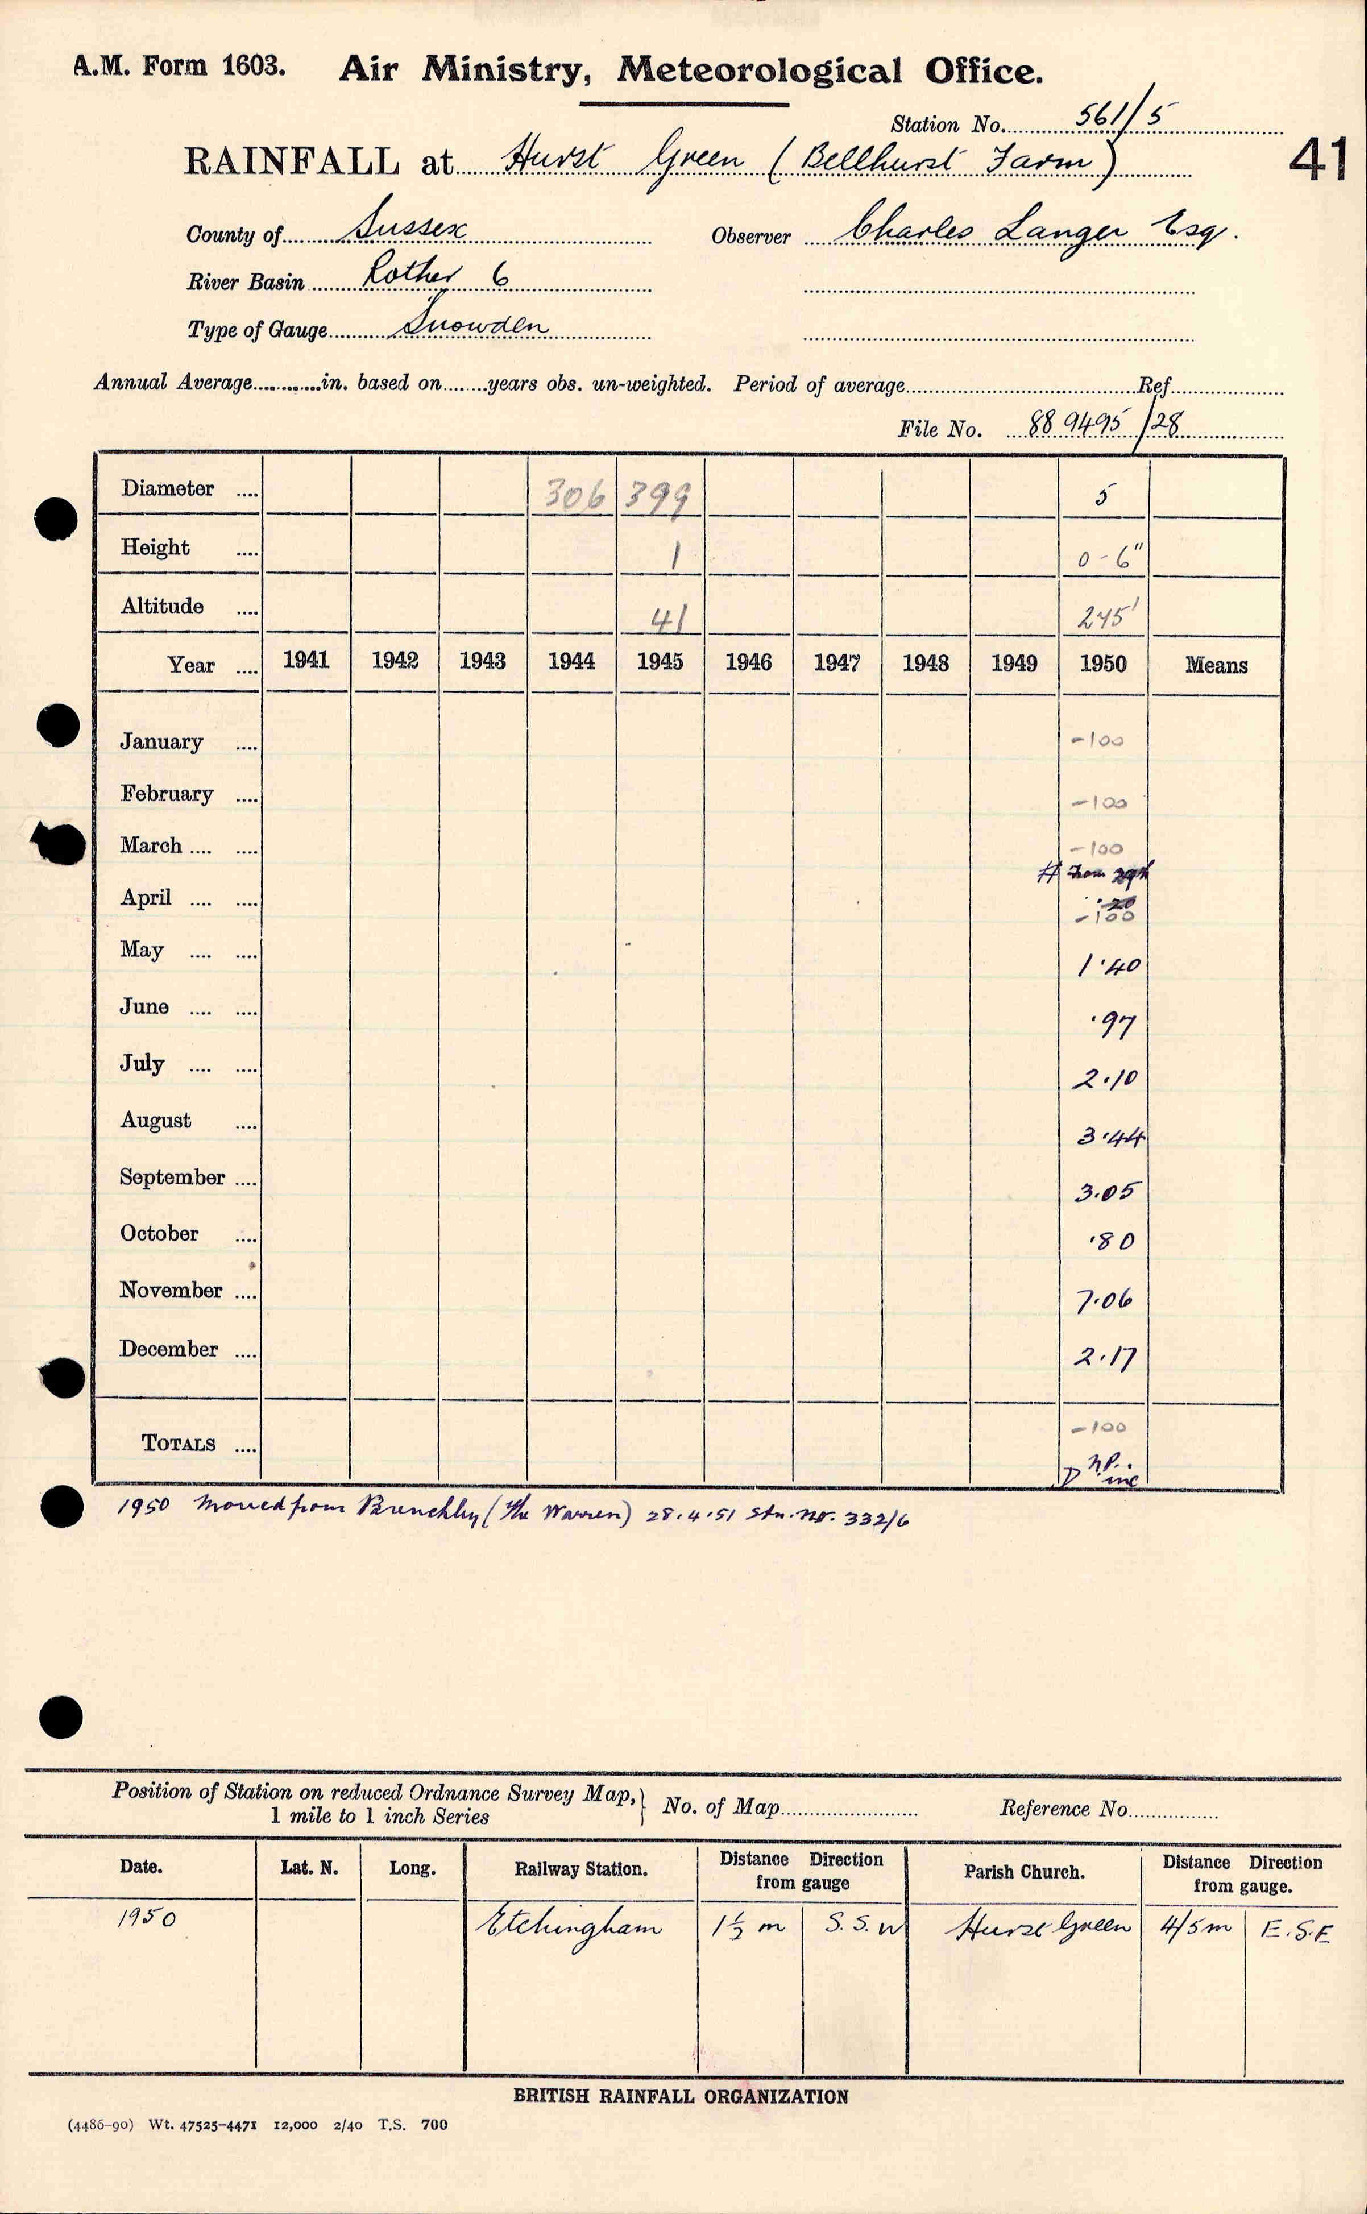 A.M. Form 1603. Air Ministry, Meteorological Office.
Station No. 561/5
RAINFALL at Hurst Green (Bellhurst Farm)
41
County of Sussex Observer Charles Langer Esq.
River Basin Rother 6
Type of Gauge Snowden
Annual Average............in. based on.......years obs. un-weighted. Period of average............Ref............
File No. 889495/28
Diameter .... 306 399 5
Height .... 1 0-6"
Altitude .... 41 245'
Year .... 1941 1942 1943 1944 1945 1946 1947 1948 1949 1950 Means
January .... -100
February .... -100
March .... .... -100
# From 29th
April .... .... .20
-100
May .... .... 1.40
June .... .... .97
July .... .... 2.10
August .... 3.44
September .... 3.05
October .... .80
November .... 7.06
December .... 2.17
TOTALS .... -100
D inc
1950 Moved from Brenchley (The Warren) 28.4.51 Stn. no. 332/6
Position of Station on reduced Ordnance Survey Map, 1 mile to 1 inch Series } No. of Map............ Reference No............
Date. Lat. N. Long. Railway Station. Distance Direction from gauge Parish Church. Distance Direction from gauge.
1950 Etchingham 1½ m S.S.W Hurst Green 4/5m E.S.E
BRITISH RAINFALL ORGANIZATION
(4486-90) Wt. 47525-4471 12,000 2/40 T.S. 700